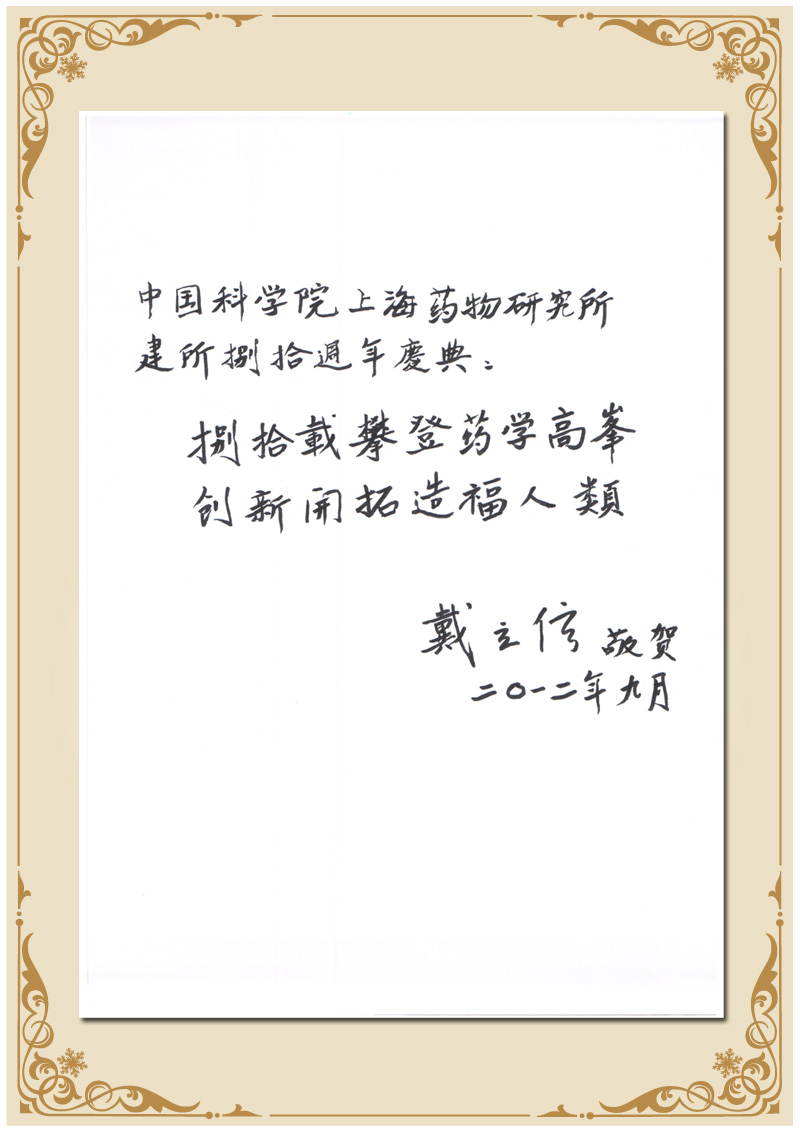 中国科学院上海药物研究所
建所捌拾週年慶典：
捌拾載攀登药学高峯
创新開拓造福人類
戴立信 敬贺
二〇一二年九月